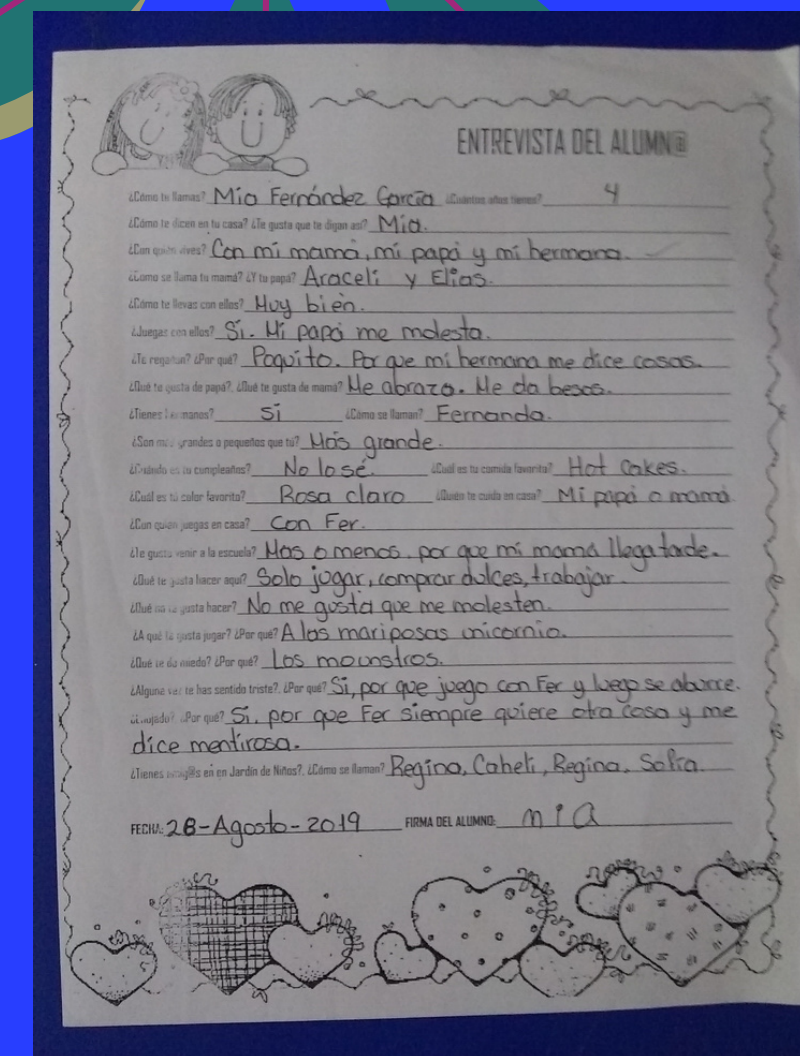 ENTREVISTA DEL ALUMN@
¿Cómo te llamas? Mia Fernández García ¿Cuántos años tienes? 4
¿Cómo te dicen en tu casa? ¿Te gusta que te digan así? Mia.
¿Con quién vives? Con mi mamá, mi papá y mi hermana.
¿Como se llama tu mamá? ¿Y tu papá? Araceli y Elias.
¿Cómo te llevas con ellos? Muy bien.
¿Juegas con ellos? Si. Mi papá me molesta.
¿Te regañan? ¿Por qué? Poquito. Por que mi hermana me dice cosas.
¿Qué te gusta de papá?, ¿Qué te gusta de mamá? Me abraza. Me da besos.
¿Tienes hermanos? Sí ¿Cómo se llaman? Fernanda.
¿Son más grandes o pequeños que tú? Más grande.
¿Cuándo es tu cumpleaños? No lo sé. ¿Cuál es tu comida favorita? Hot Cakes.
¿Cuál es tu color favorito? Rosa claro ¿Quién te cuida en casa? Mi papá o mamá
¿Con quién juegas en casa? Con Fer.
¿Te gusta venir a la escuela? Mas o menos, por que mi mamá llega tarde.
¿Qué te gusta hacer aquí? Solo jugar, comprar dulces, trabajar.
¿Qué no te gusta hacer? No me gusta que me molesten.
¿A qué te gusta jugar? ¿Por qué? A las mariposas unicornio.
¿Qué te da miedo? ¿Por qué? Los mounstros.
¿Alguna vez te has sentido triste?, ¿Por qué? Si, por que juego con Fer y luego se aburre.
¿Enojado? ¿Por qué? Si, por que Fer siempre quiere otra cosa y me
dice mentirosa.
¿Tienes amig@s en en Jardín de Niños?, ¿Cómo se llaman? Regina, Caheli, Regina, Sofía.
FECHA: 28-Agosto-2019 FIRMA DEL ALUMNO: mia